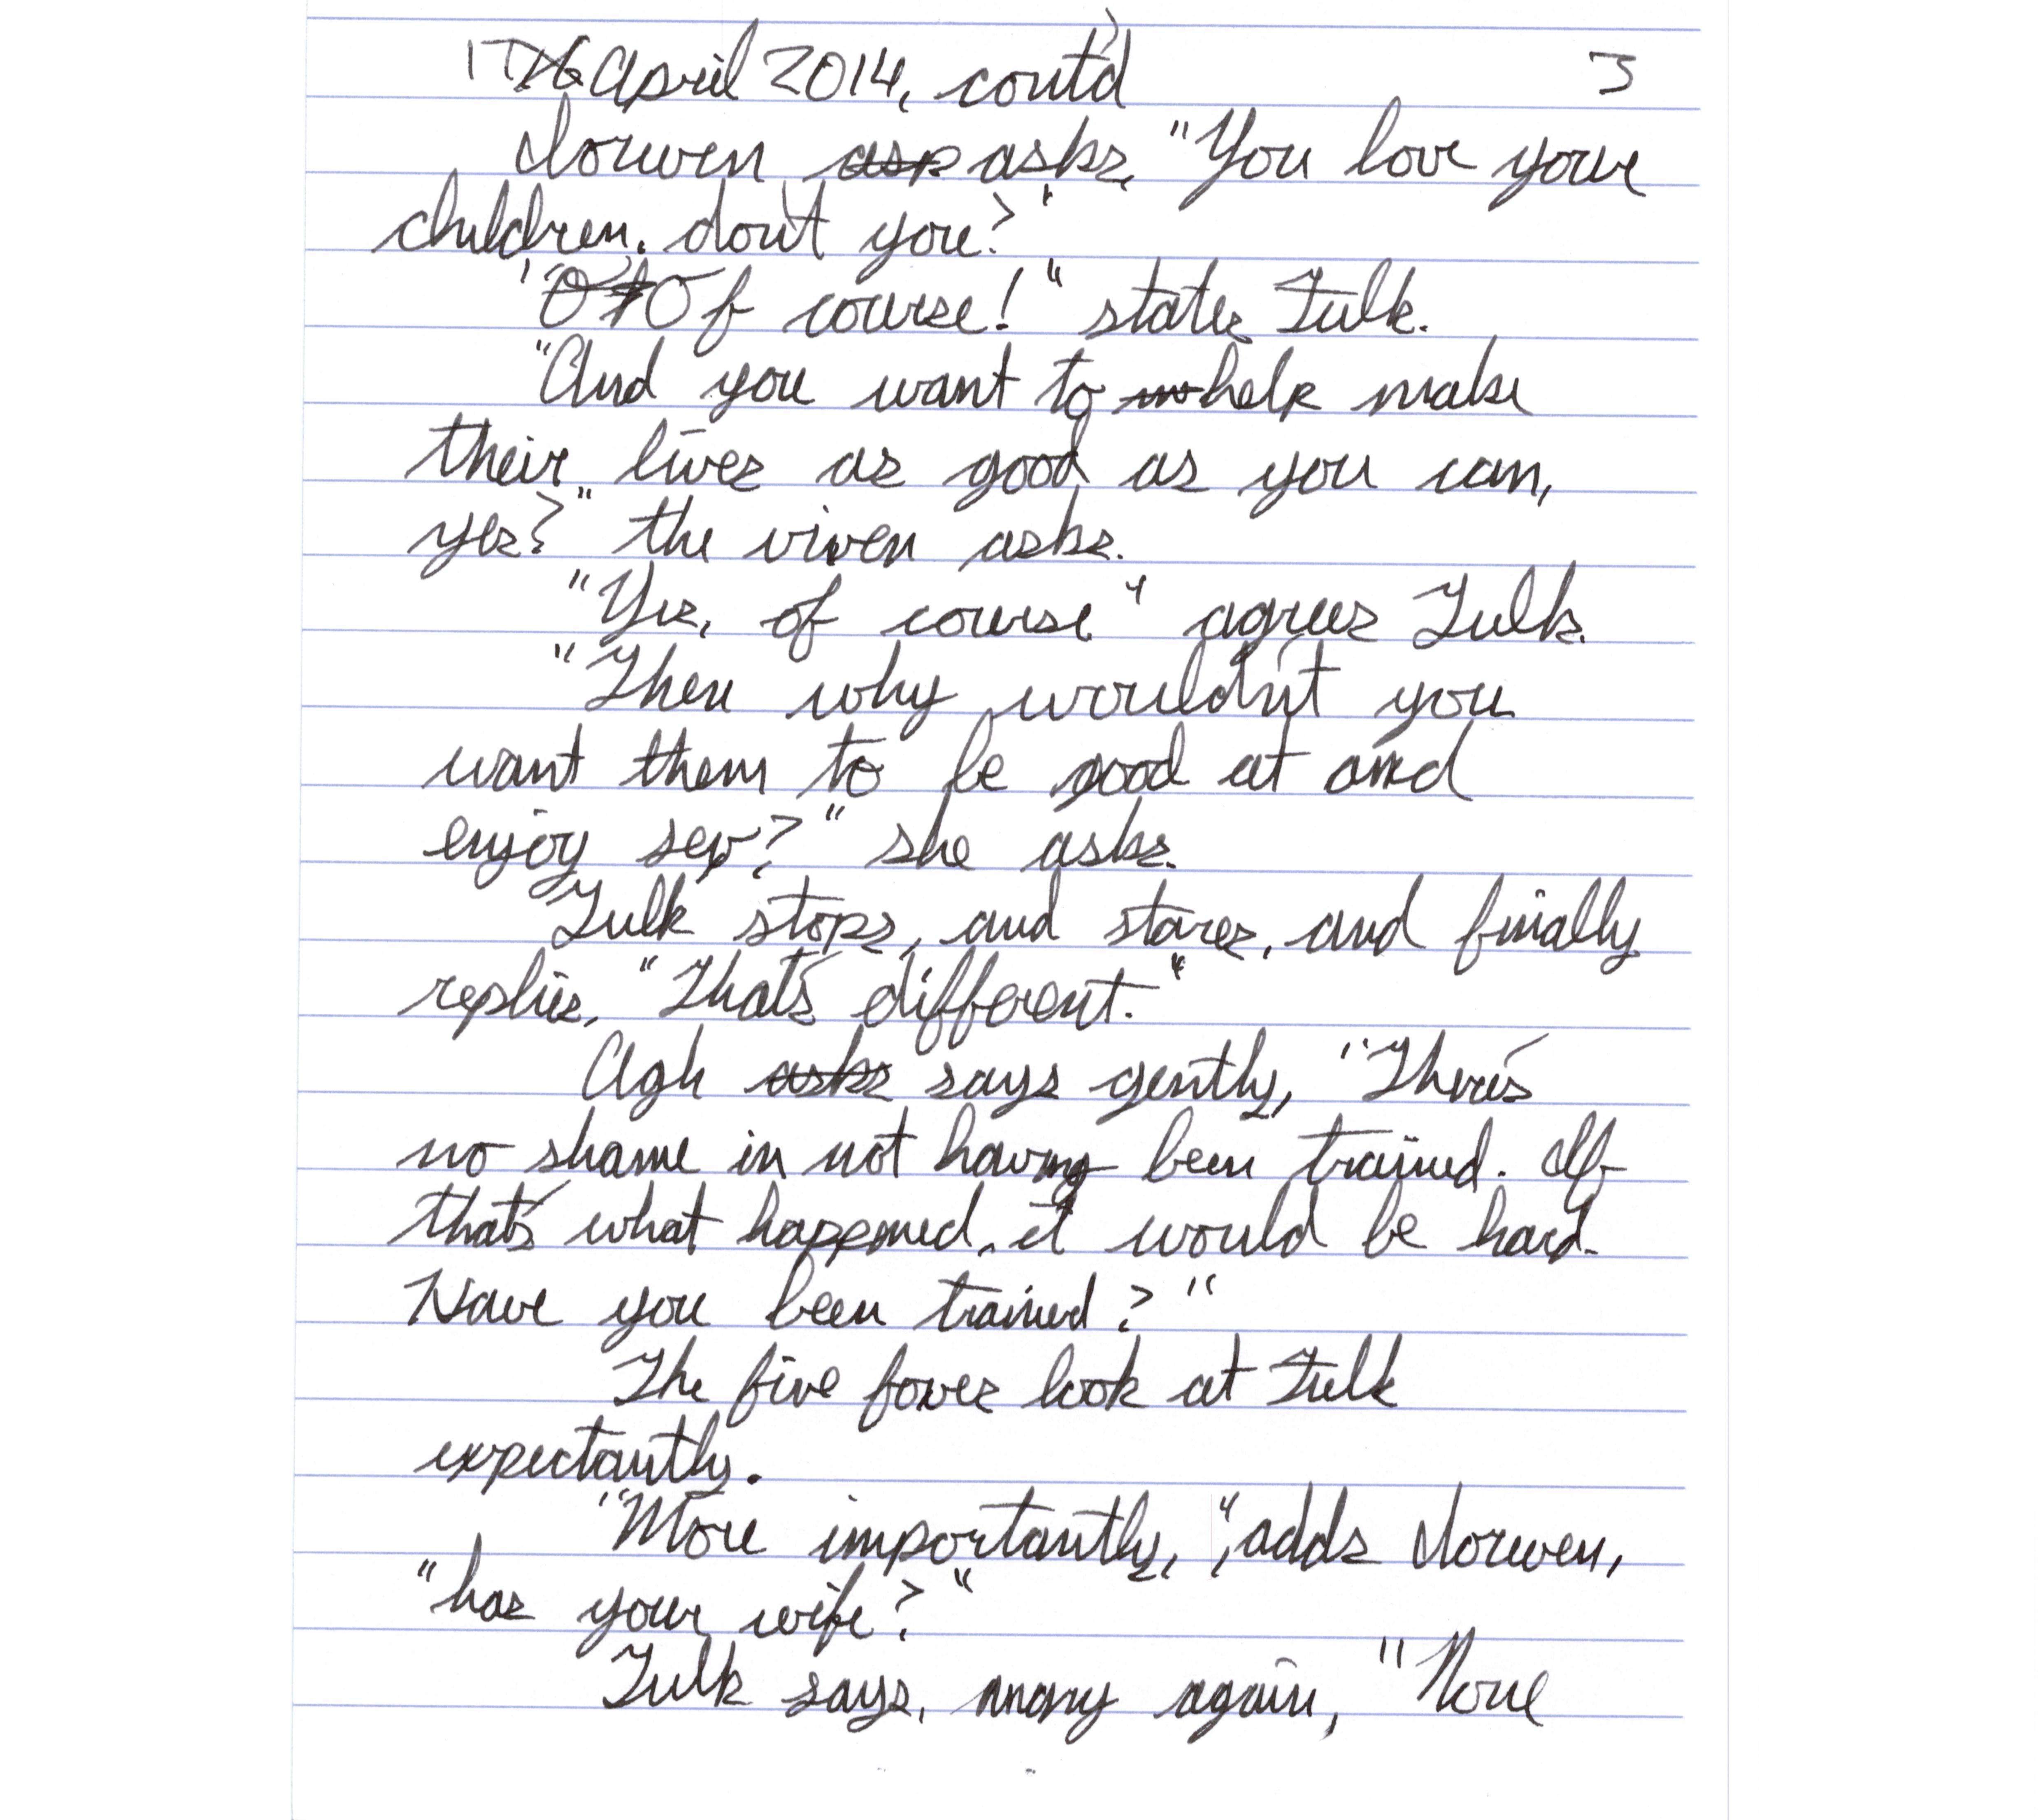 17 April 2014, cont'd 3
Iorwen asks, "You love your
children, don't you?"
"Of course!" states Tulk.
"And you want to help make
their lives as good as you can,
yes?" the vixen asks.
"Yes, of course" agrees Tulk.
"Then why wouldn't you
want them to be good at and
enjoy sex?" she asks.
Tulk stops, and stares, and finally
replies, "That's different."
Agh says gently, "There's
no shame in not having been trained. If
that's what happened, it would be hard.
Have you been trained?"
The five foxes look at Tulk
expectantly.
"More importantly," adds Iorwen,
"has your wife?"
Tulk says, angry again, "None